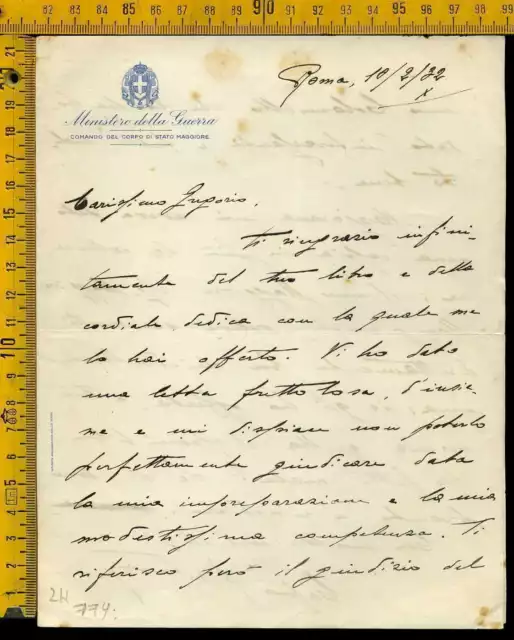 Roma, 10/2/32
X
Ministero della Guerra
COMANDO DEL CORPO DI STATO MAGGIORE
Carissimo Gregorio,
Ti ringrazio infini-
tamente del tuo libro e della
cordiale dedica con la quale me
lo hai offerto. Vi ho dato
una letta frettolosa, d'insie-
me e mi dispiace non poterlo
perfettamente giudicare data
la mia impreparazione e la mia
modestissima competenza. Ti
riferisco però il giudizio del
2H
774: